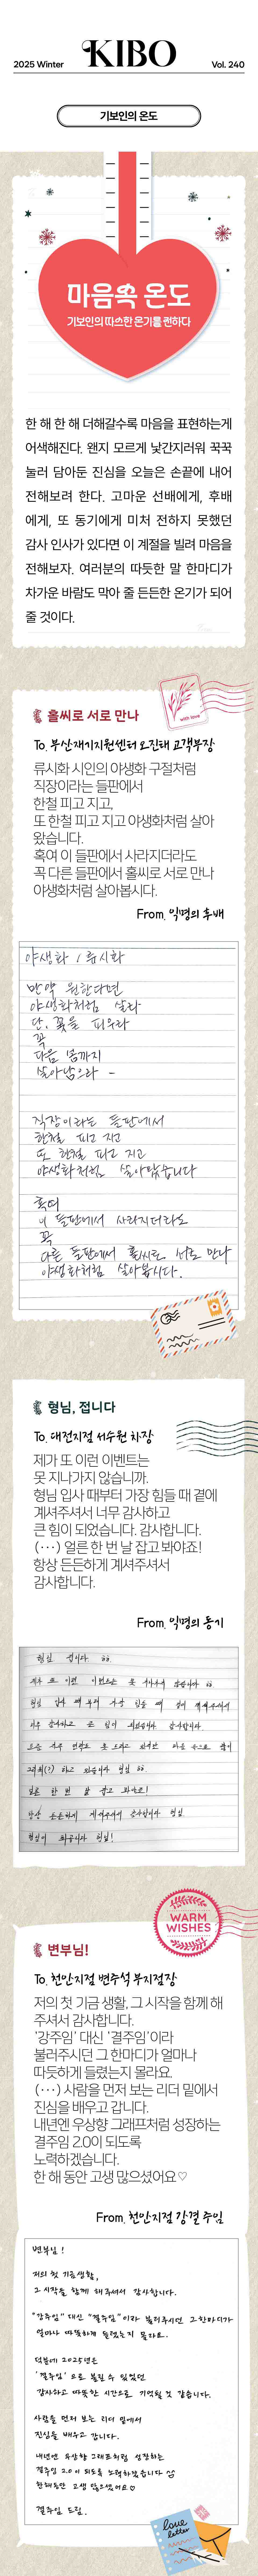 2025 Winter
KIBO
Vol. 240
기보인의 온도
마음속 온도
기보인의 따스한 온기를 전하다
한 해 한 해 더해갈수록 마음을 표현하는게
어색해진다. 왠지 모르게 낯간지러워 꾹꾹
눌러 담아둔 진심을 오늘은 손끝에 내어
전해보려 한다. 고마운 선배에게, 후배
에게, 또 동기에게 미처 전하지 못했던
감사 인사가 있다면 이 계절을 빌려 마음을
전해보자. 여러분의 따듯한 말 한마디가
차가운 바람도 막아 줄 든든한 온기가 되어
줄 것이다.
with love
홀씨로 서로 만나
To. 부산재기지원센터 오진태 고객부장
류시화 시인의 야생화 구절처럼
직장이라는 들판에서
한철 피고 지고,
또 한철 피고 지고 야생화처럼 살아
왔습니다.
혹여 이 들판에서 사라지더라도
꼭 다른 들판에서 홀씨로 서로 만나
야생화처럼 살아봅시다.
From. 익명의 후배
야생화 / 류시화
만약 원한다면
야생화처럼 살라
단, 꽃을 피우라
꼭
다음 봄까지
살아남으라 -
직장이라는 들판에서
한철 피고 지고
또 한철 피고 지고
야생화처럼 살아왔습니다
혹여
이 들판에서 사라지더라도
꼭
다른 들판에서 홀씨로 서로 만나
야생화처럼 살아봅시다.
형님, 접니다
To. 대전지점 서수원 차장
제가 또 이런 이벤트는
못 지나가지 않습니까.
형님 입사 때부터 가장 힘들 때 곁에
계셔주셔서 너무 감사하고
큰 힘이 되었습니다. 감사합니다.
(···) 얼른 한 번 날 잡고 봐야죠!
항상 든든하게 계셔주셔서
감사합니다.
From. 익명의 동기
형님 접니다
제가 또 이런 이벤트는 못 지나가지 않습니까
형님 입사 때 부터 가장 힘들 때 곁에 계셔주셔서
너무 감사하고 큰 힘이 되었습니다 감사합니다
요즘 자주 연락도 못 드리고 하지만 마음 속으로 많이
하고 있습니다 형님
얼른 한 번 날 잡고 봐야죠!
항상 든든하게 계셔주셔서 감사합니다 형님
형님이 최고십니다 형님!
WARM
WISHES
변부님!
To. 천안지점 변주석 부지점장
저의 첫 기금 생활, 그 시작을 함께 해
주셔서 감사합니다.
'강주임' 대신 '결주임'이라
불러주시던 그 한마디가 얼마나
따듯하게 들렸는지 몰라요.
(···) 사람을 먼저 보는 리더 밑에서
진심을 배우고 갑니다.
내년엔 우상향 그래프처럼 성장하는
결주임 2.0이 되도록
노력하겠습니다.
한 해 동안 고생 많으셨어요♡
From. 천안지점 강결 주임
변부님!
저의 첫 기금생활,
그 시작을 함께 해주셔서 감사합니다.
"강주임" 대신 "결주임"이라 불러주시던 그한마디가
얼마나 따뜻하게 들렸는지 몰라요.
덕분에 2025년은
'결주임' 으로 불릴 수 있었던
감사하고 따뜻한 시간으로 기억될 것 같습니다.
사람을 먼저 보는 리더 밑에서
진심을 배우고 갑니다.
내년엔 우상향 그래프처럼 성장하는
결주임 2.0이 되도록 노력하겠습니다
한해동안 고생 많으셨어요♡
결주임 드림.
love
letter